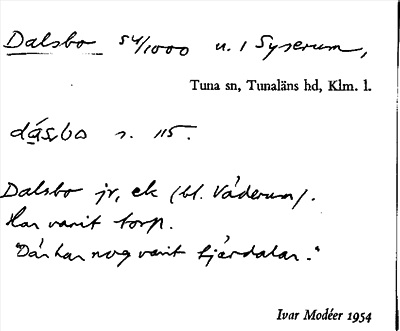 Dalsbo 54/1000 u. 1 Syserum,
Tuna sn, Tunaläns hd, Klm. l.
dásbo s. 115.
Dalsbo jr, ek (bl. Váderum).
Har varit torp.
"Där har nog varit fjärdalar."
Ivar Modéer 1954